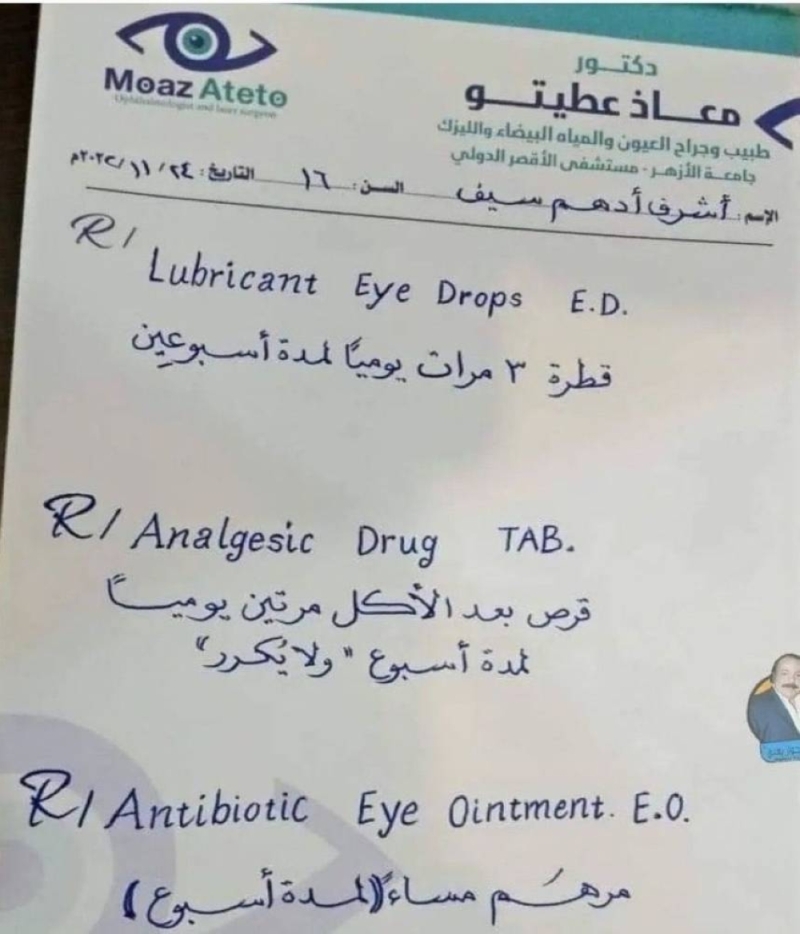 Moaz Ateto
Ophthalmologist and laser surgeon
دكتور
معاذ عطيتو
طبيب وجراح العيون والمياه البيضاء والليزك
جامعة الأزهر - مستشفى الأقصر الدولي
الإسم: أشرف أدهم سيف السن: ١٦ التاريخ: ٢٤ / ١١ / ٢٠٢٢م
R/
Lubricant Eye Drops E.D.
قطرة ٣ مرات يومياً لمدة أسبوعين
R/ Analgesic Drug TAB.
قرص بعد الأكل مرتين يومياً
لمدة أسبوع "ولا يُكرر"
R/ Antibiotic Eye Ointment. E.O.
مرهَم مساءً (لمدة أسبوع)